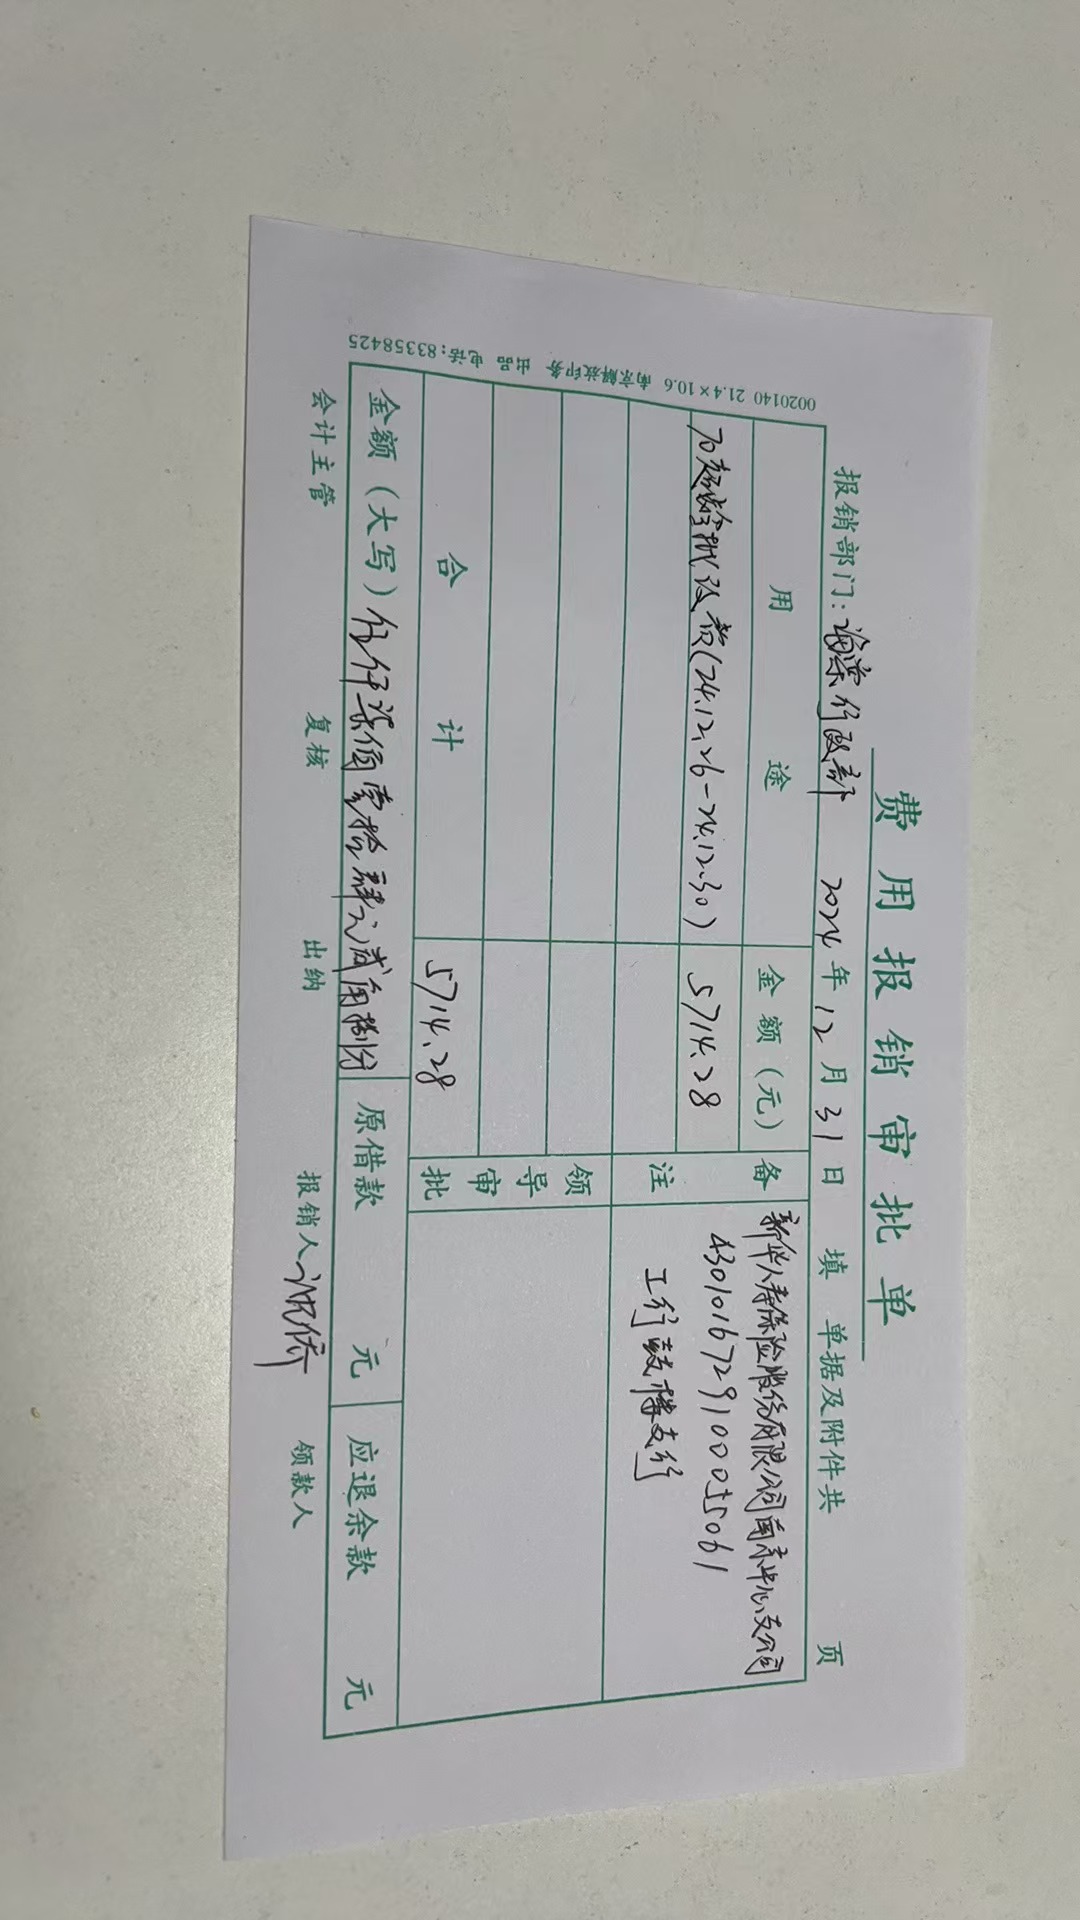 费用报销审批单
报销部门：瀚荣行政部 2024年12月31日填 单据及附件共 页
用途 金额（元） 备注
新华人寿保险股份有限公司南京中心支公司
(24.12.26-24.12.30) 5714.28
4301016729100055061
工行鼓楼支行
领导审批
合计 5714.28
金额（大写）伍仟柒佰壹拾肆元贰角捌分 原借款 元 应退余款 元
会计主管 复核 出纳 报销人 领款人
0020140 21.4×10.6 南京解放印务 出品 电话：83358425